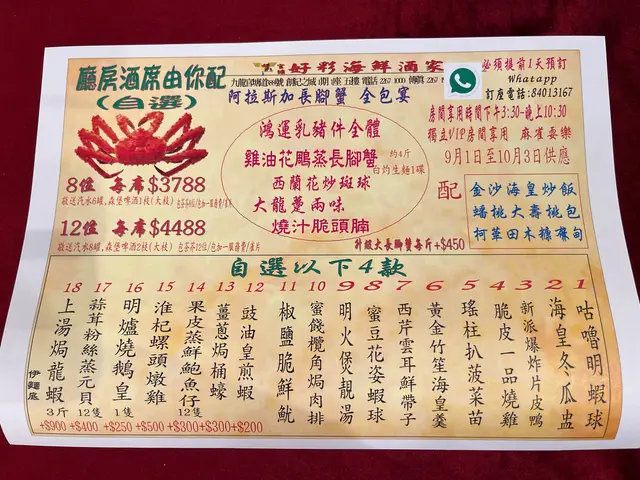 廳房酒席由你配
(自選)
好彩海鮮酒家
必須提前1天預訂
Whatapp
訂座電話:84013167
阿拉斯加長腳蟹 全包宴
房間享用時間下午3:30-晚上10:30
獨立VIP房間享用 麻雀耍樂
9月1日至10月3日供應
鴻運乳豬件全體
雞油花鵰蒸長腳蟹 約4斤
白灼生麵1碟
西蘭花炒斑球
大龍躉兩味
燒汁脆頭腩
8位 每席$3788
敬送汽水6罐,森堡啤酒1枝(大枝)
12位 每席$4488
敬送汽水8罐,森堡啤酒2枝(大枝)
升級大長腳蟹每斤+$450
配
金沙海皇炒飯
蟠桃大壽桃包
自選以下4款
18 17 16 15 14 13 12 11 10 9 8 7 6 5 4 3 2 1
咕嚕明蝦球
海皇冬瓜盅
新派爆炸片皮鴨
脆皮一品燒雞
瑤柱扒菠菜苗
黃金竹笙海皇羹
西芹雲耳鮮帶子
蜜豆花姿蝦球
明火煲靚湯
蜜餞欖角焗肉排
椒鹽脆鮮魷
豉油皇煎蝦 +$200
薑蔥焗桶蠔 +$300
果皮蒸鮮鮑魚仔 12隻 +$300
淮杞螺頭燉雞 +$500
明爐燒鵝皇 1隻 +$250
蒜茸粉絲蒸元貝 12隻 +$400
上湯焗龍蝦 伊麵底 3斤 +$900